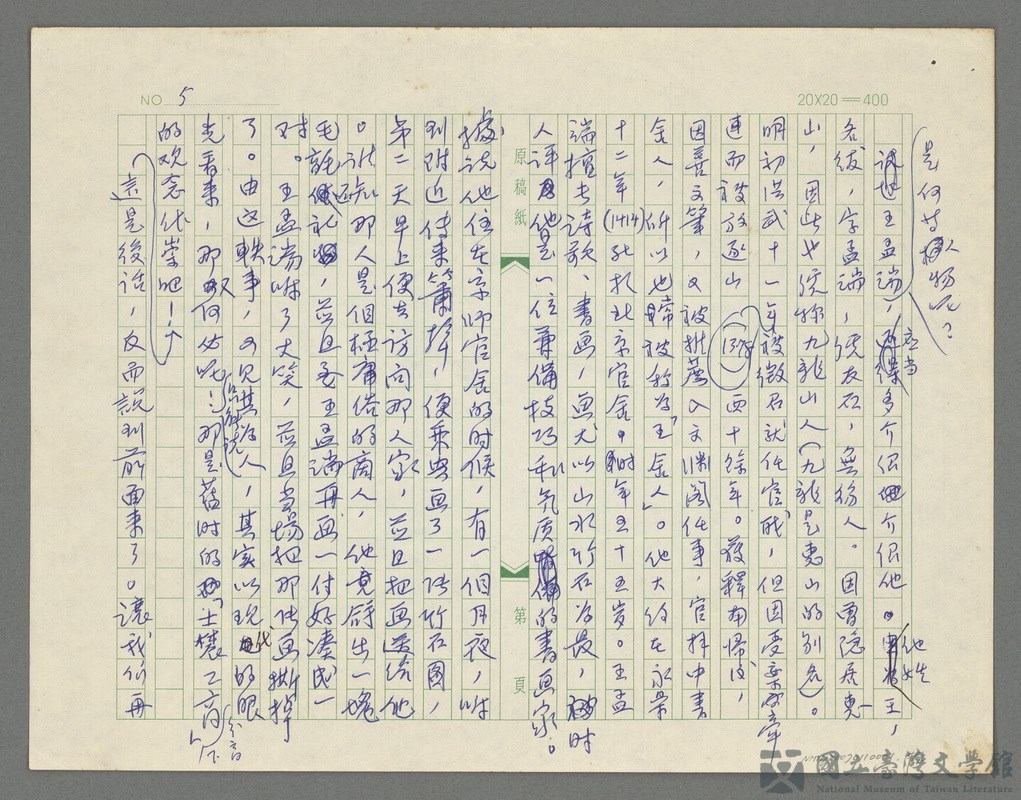 NO 5
20X20＝400
是何等人物呢？
王孟端，應當多介但他。他姓王，
名紱，字孟端，號友石，無錫人。因曾隱居惠
山，因此也號称九龍山人（九龍是惠山的別名）。
明初洪武十一年（1378）被徵召就任官職，但因受案件牽
連而被放逐山西十餘年。獲釋南帰後，
因善文筆，又被推薦入文渊阁任事，官拜中書
舍人，所以也常被称为「王舍人」。他大约在永樂
十二年（1414）死於北京官舍。時年五十五岁。王孟
端擅長詩歌、書画，画尤以山水竹石为最，時
人評他是一位兼備技巧和气质的書画家。
原稿紙
第 頁
據說他住在京师官舍的时候，有一個月夜，听
到附近傳来簫声，便乘興画了一張竹石圖，
第二天早上便去访问那人家，並且把画送给他
。誰知那人是個極庸俗的商人，他竟辞出一塊
毛氈还礼，並且要王孟端再画一付好湊成一
对。王孟端听了大笑，並且当場把那張画撕掉
了。由这軼事，可見其为人，其实以現代的眼
光看来，那又何必呢？那是舊时的「士農工商」
的观念作祟吧！
這是後话，反而說到前面来了。讓我们再
國立臺灣文學館
National Museum of Taiwan Literature